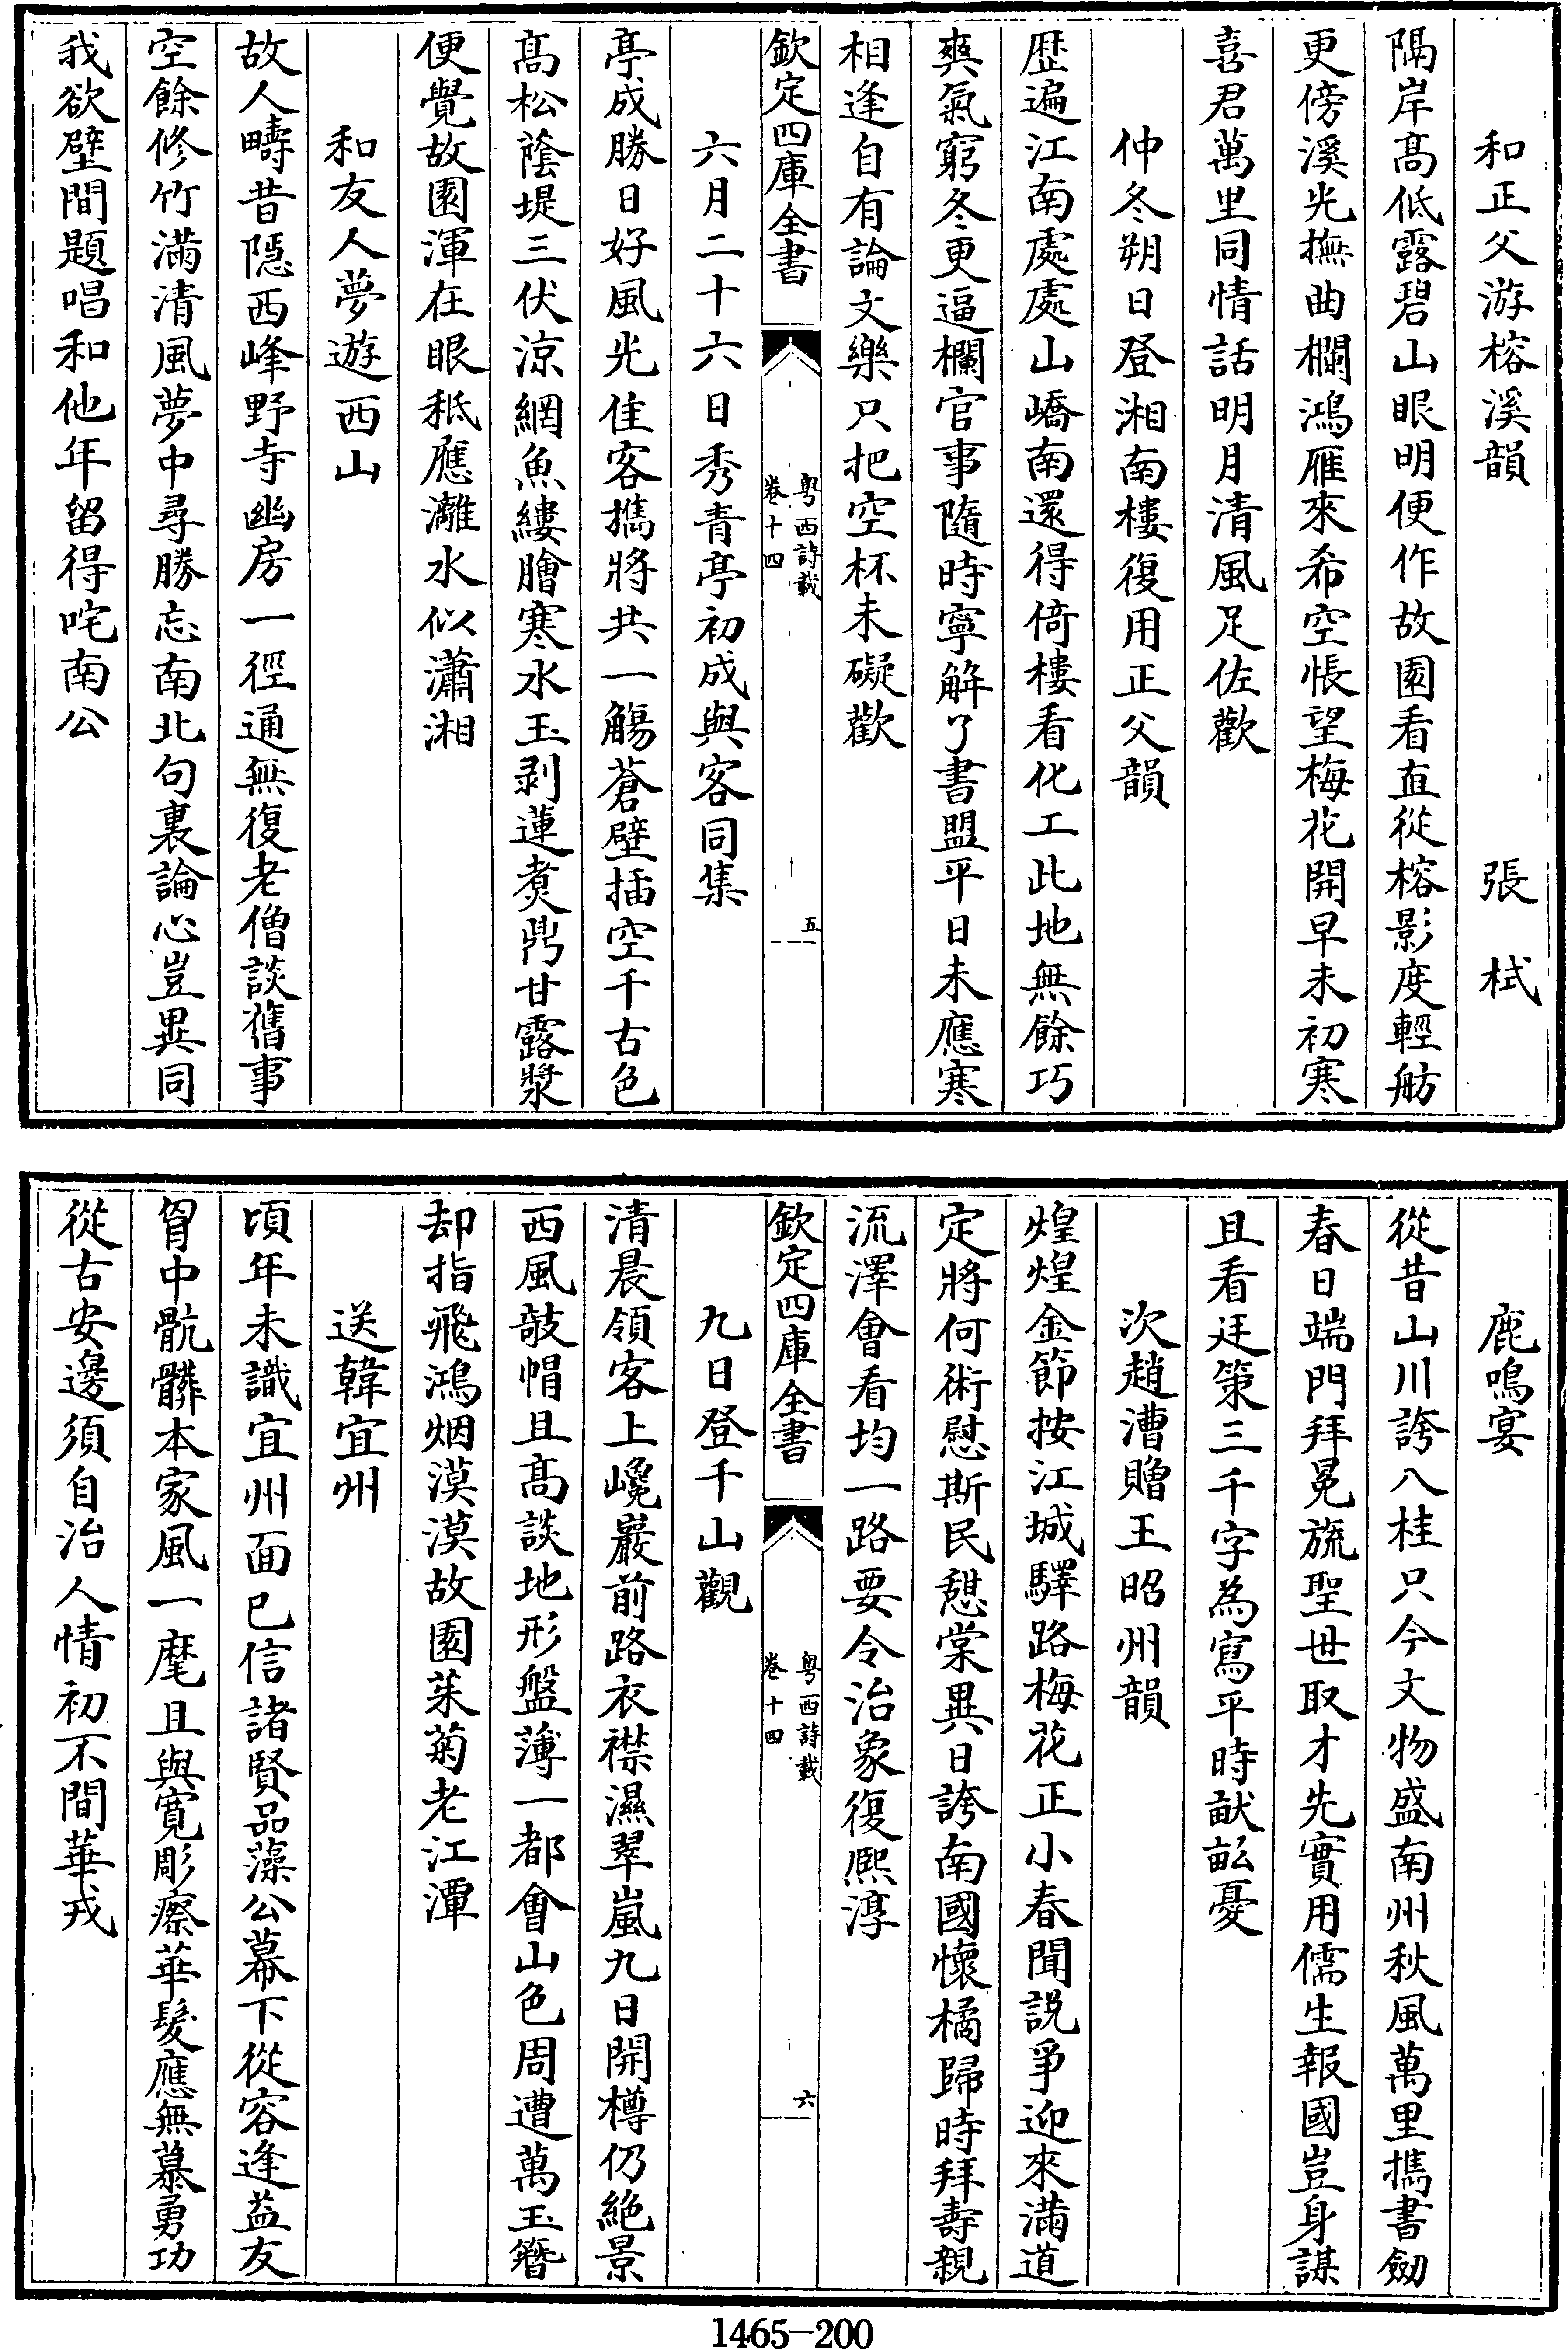 和正父游榕溪韻　張栻
隔岸髙低露碧山眼明便作故園看直從榕影度輕舫
更傍溪光撫曲欄鴻雁來希空悵望梅花開早未初寒
喜君萬里同情話明月清風足佐歡
仲冬朔日登湘南樓復用正父韻
歴遍江南處處山嶠南還得倚樓看化工此地無餘巧
爽氣窮冬更逼欄官事隨時寧解了書盟平日未應寒
相逢自有論文樂只把空杯未礙歡
欽定四庫全書
粤西詩載
卷十四
五
六月二十六日秀青亭初成與客同集
亭成勝日好風光佳客攜將共一觴蒼壁插空千古色
髙松蔭堤三伏涼網魚縷膾寒水玉剥蓮煑鼎甘露漿
便覺故園渾在眼秪應灕水似瀟湘
和友人夢遊西山
故人疇昔隠西峰野寺幽房一徑通無復老僧談舊事
空餘修竹滿清風夢中尋勝忘南北句裏論心豈異同
我欲壁間題唱和他年留得咤南公
鹿鳴宴
從昔山川誇八桂只今文物盛南州秋風萬里攜書劒
春日端門拜冕旒聖世取才先實用儒生報國豈身謀
且看廷策三千字為寫平時畎畝憂
次趙漕贈王昭州韻
煌煌金節按江城驛路梅花正小春聞説爭迎來滿道
定將何術慰斯民憇棠異日誇南國懷橘歸時拜壽親
流澤會看均一路要令治象復熈淳
欽定四庫全書
粤西詩載
卷十四
六
九日登千山觀
清晨領客上巉巖前路衣襟濕翠嵐九日開樽仍絶景
西風攲帽且髙談地形盤薄一都會山色周遭萬玉簪
却指飛鴻烟漠漠故園茱菊老江潭
送韓宜州
頃年未識宜州面已信諸賢品藻公幕下從容逢益友
胷中骯髒本家風一麾且與寛彫瘵華髮應無慕勇功
從古安邊須自治人情初不間華戎
1465-200